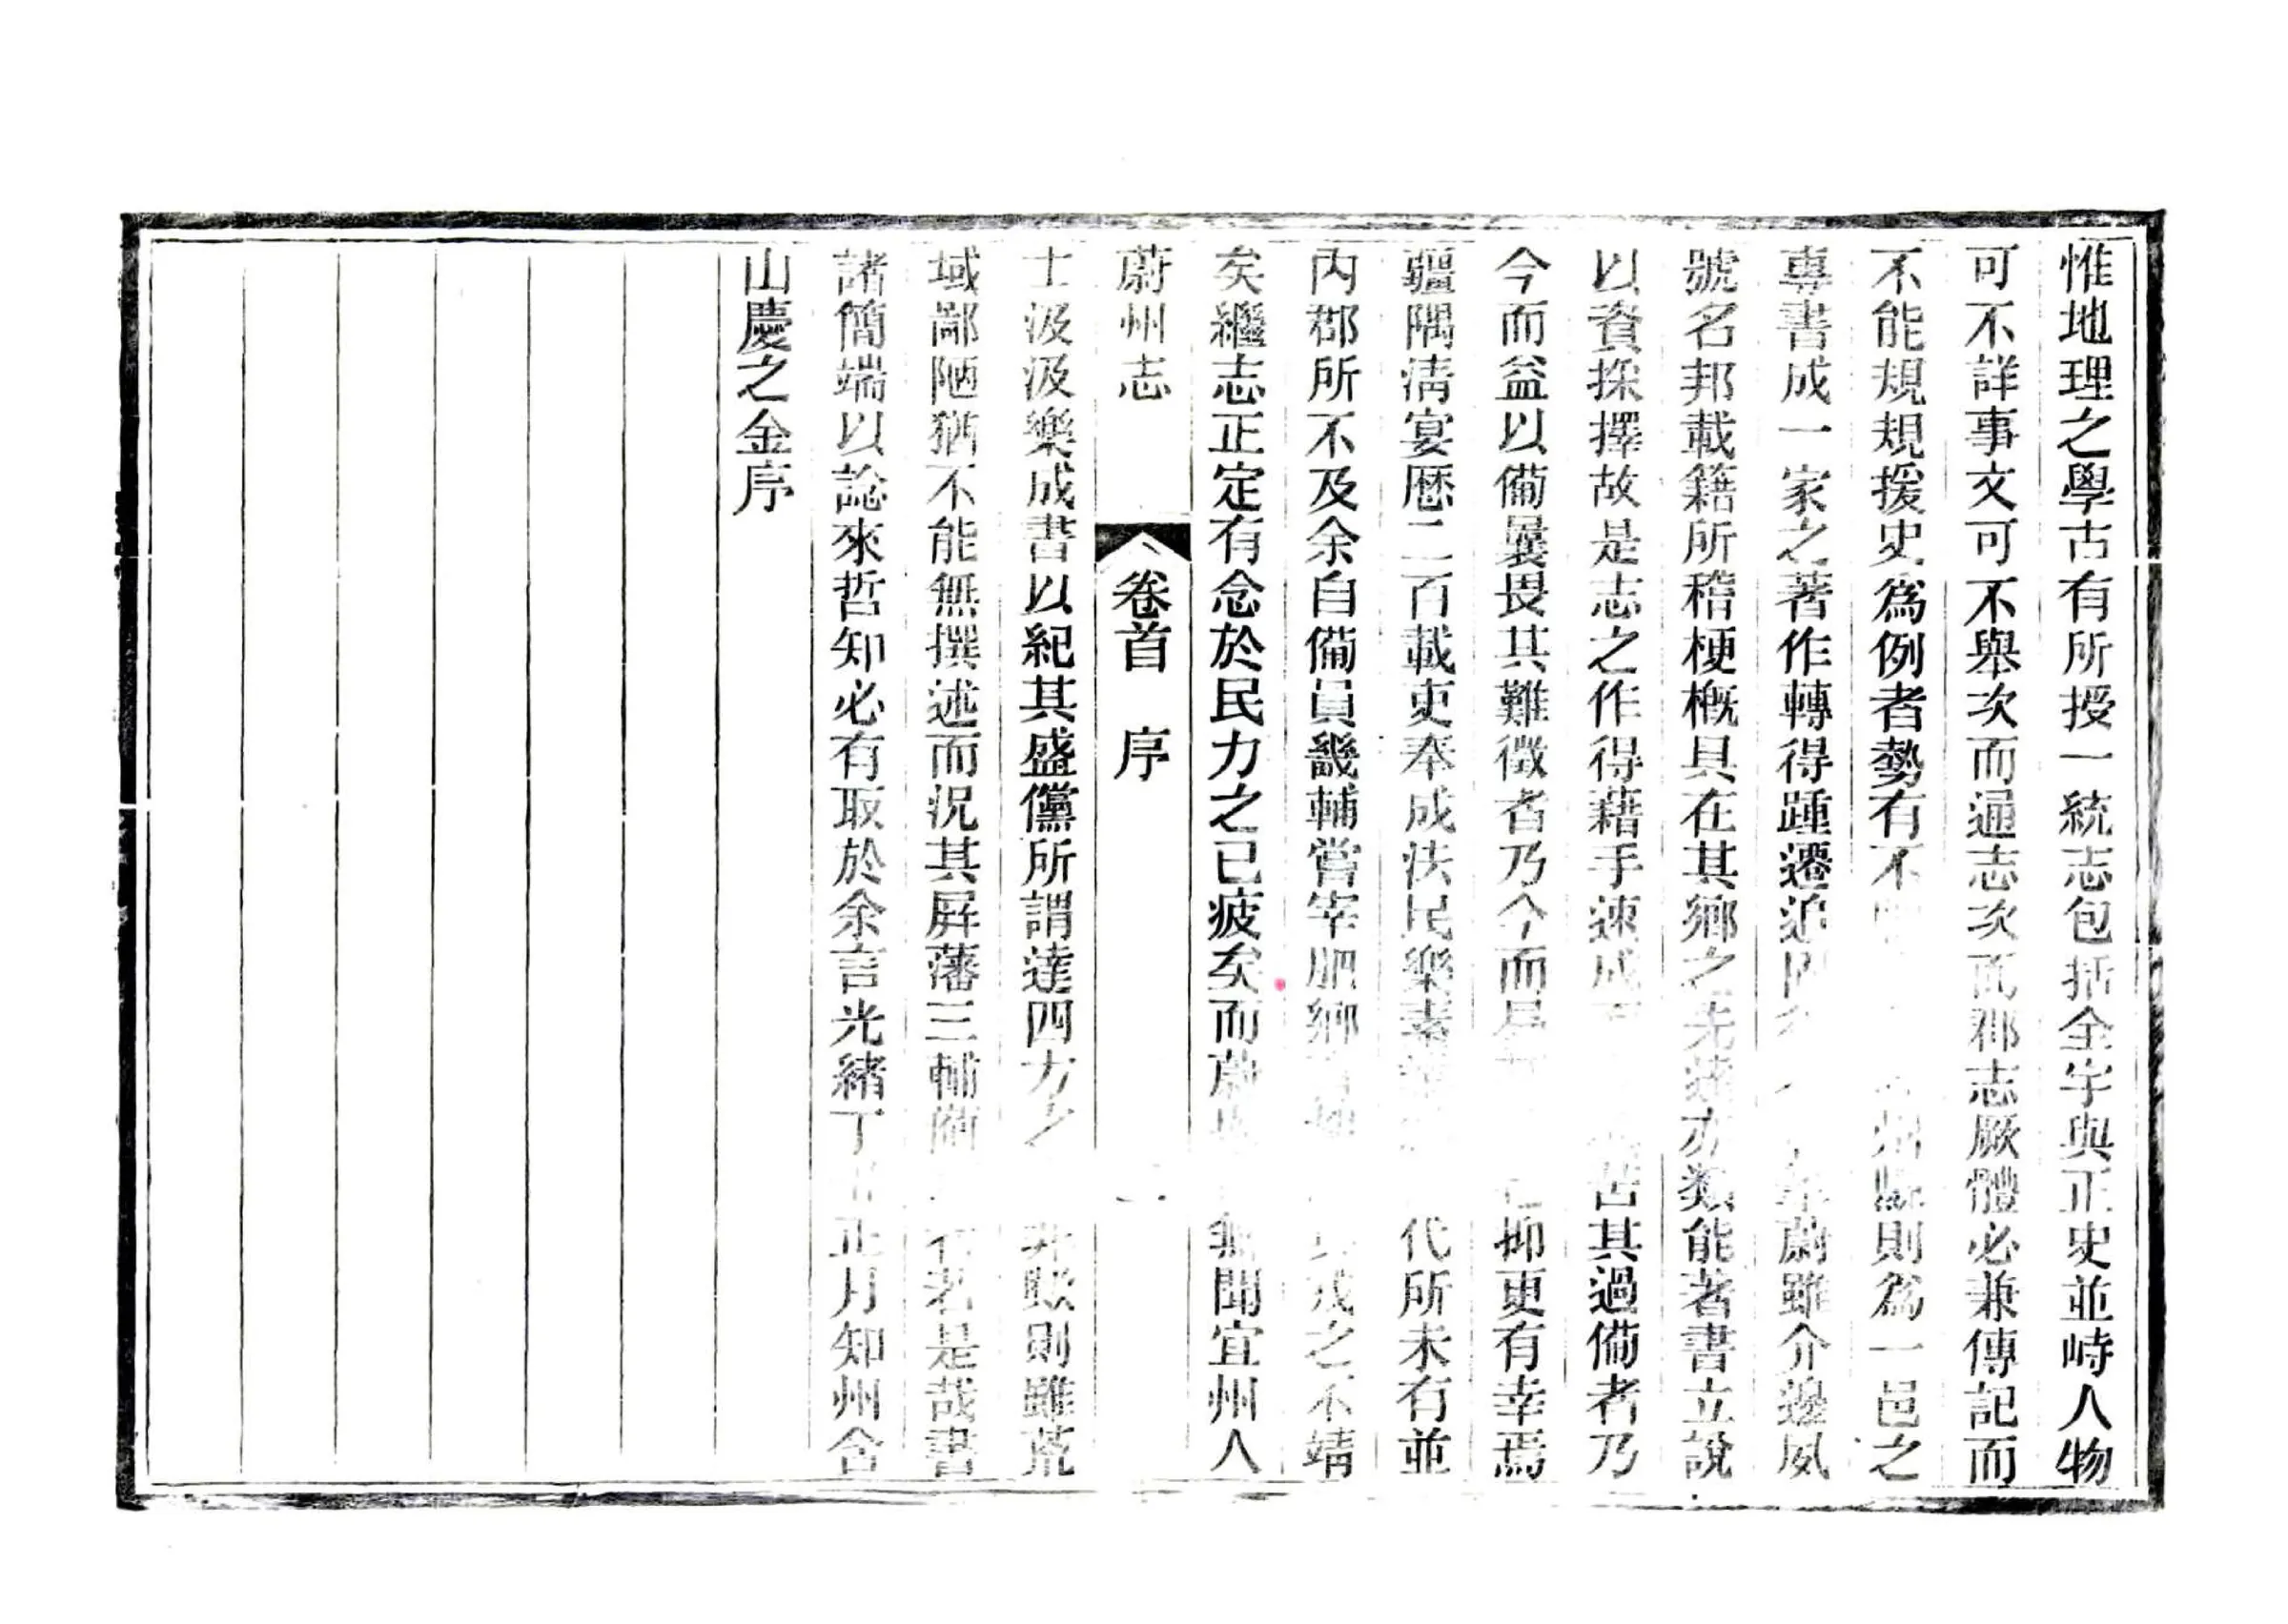 惟地理之學古有所授一統志包括全宇與正史並峙人物
可不詳事文可不舉次而通志次而郡志厥體必兼傳記而
不能規規援史為例者勢有不州縣則為一邑之
專書成一家之著作轉得踵遷追固蔚雖介邊威
號名邦載籍所稽梗概具在其鄉之先達亦類能著書立說
以資採擇故是志之作得藉手速成苦其過備者乃
今而益以備曩畏其難徵者乃今而易抑更有幸焉
疆隅清宴歷二百載吏奉成法民樂素代所未有並
內郡所不及余自備員畿輔嘗宰肥鄉戎之不靖
矣繼志正定有念於民力之已疲矣而蔚無聞宜州人
蔚州志
卷首 序
一
士汲汲樂成書以紀其盛儻所謂達四方之非歟則雖荒
域鄙陋猶不能無撰述而況其屏藩三輔者是哉書
諸簡端以諗來哲知必有取於余言光緒丁丑正月知州含
山慶之金序